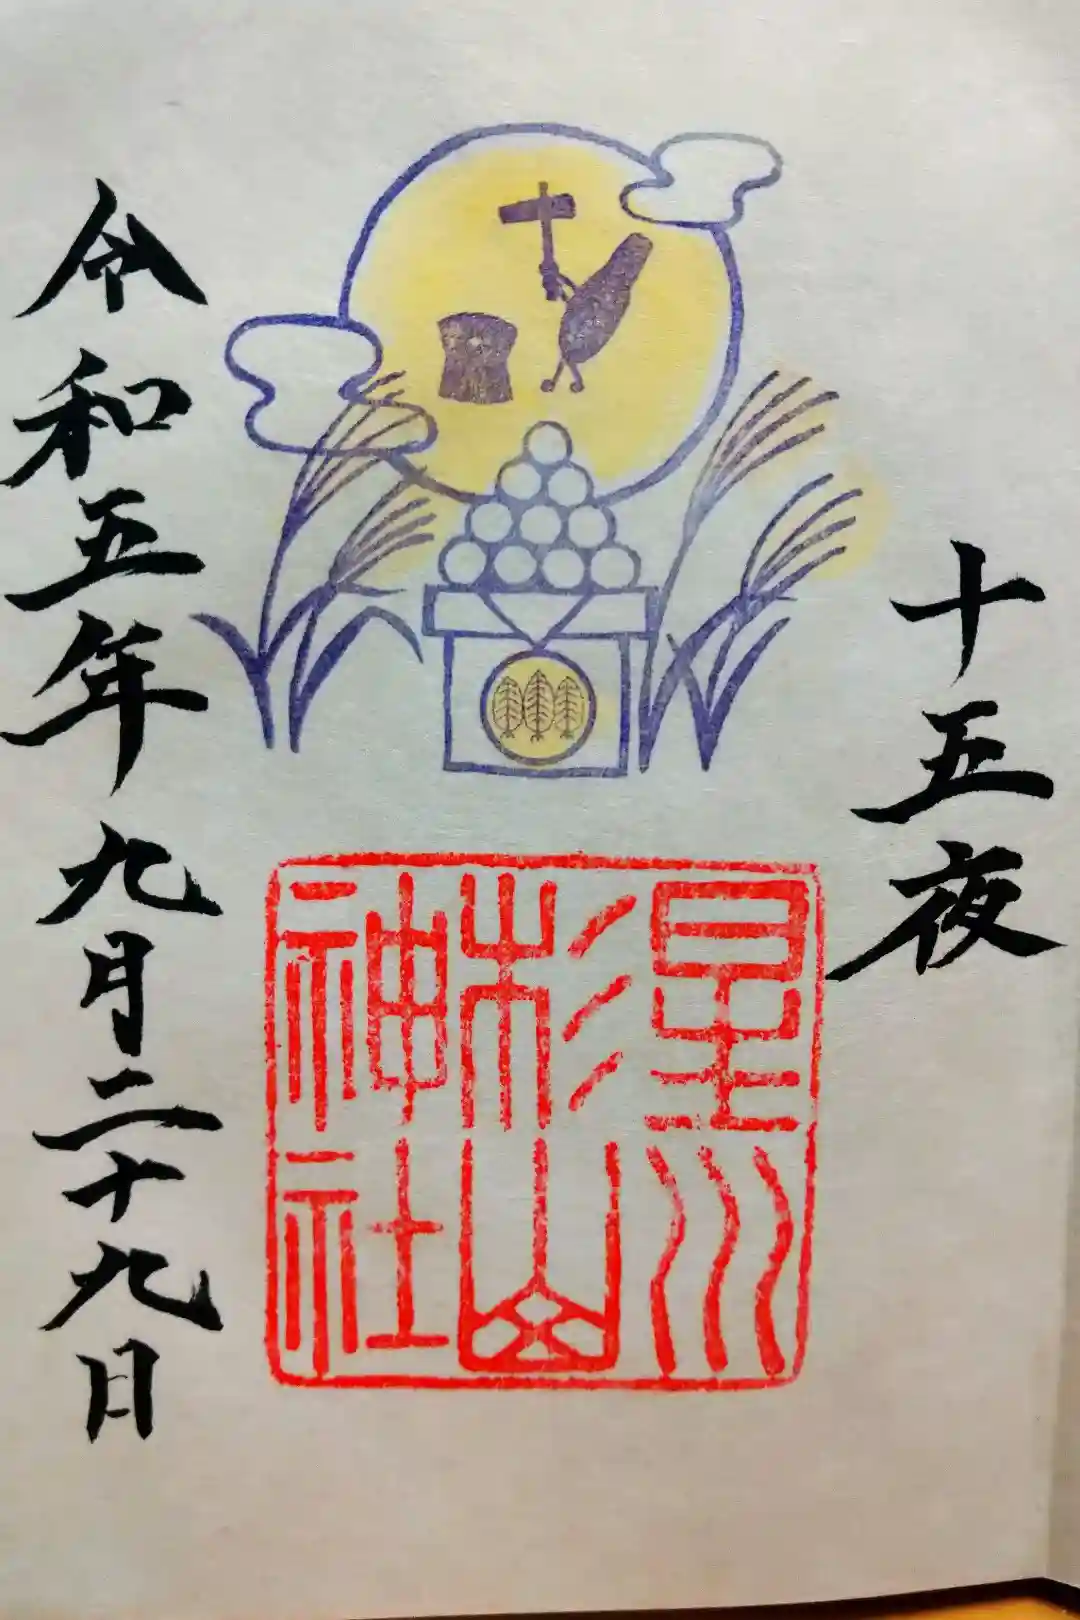 十五夜
星川
杉山
神社
令和五年九月二十九日